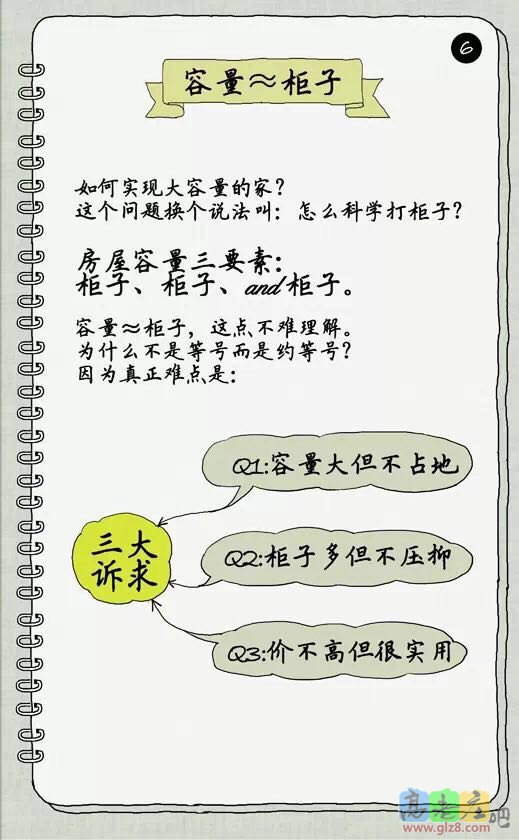 6
容量≈柜子
如何实现大容量的家?
这个问题换个说法叫：怎么科学打柜子?
房屋容量三要素：
柜子、柜子、and柜子。
容量≈柜子，这点不难理解。
为什么不是等号而是约等号?
因为真正难点是：
Q1:容量大但不占地
三大
诉求
Q2:柜子多但不压抑
Q3:价不高但很实用
高老庄吧
www.glz8.com